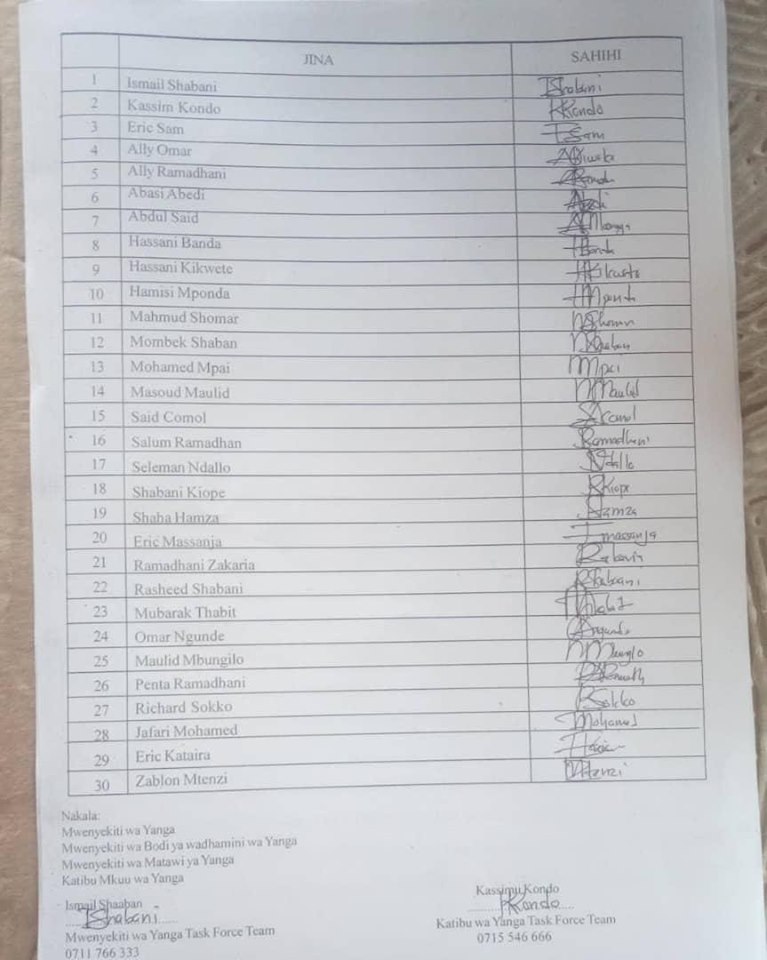 JINA SAHIHI
1 Ismail Shabani IShabani
2 Kassim Kondo KKondo
3 Eric Sam ESam
4 Ally Omar
5 Ally Ramadhani
6 Abasi Abedi Abedi
7 Abdul Said
8 Hassani Banda HBanda
9 Hassani Kikwete HKikwete
10 Hamisi Mponda HMponda
11 Mahmud Shomar MShomar
12 Mombek Shaban MShaban
13 Mohamed Mpai Mpai
14 Masoud Maulid MMaulid
15 Said Comol SComol
16 Salum Ramadhan Ramadhani
17 Seleman Ndallo Ndallo
18 Shabani Kiope Kiope
19 Shaba Hamza Hamza
20 Eric Massanja Emassanja
21 Ramadhani Zakaria
22 Rasheed Shabani RShabani
23 Mubarak Thabit
24 Omar Ngunde
25 Maulid Mbungilo
26 Penta Ramadhani
27 Richard Sokko RSokko
28 Jafari Mohamed Mohamed
29 Eric Kataira
30 Zablon Mtenzi Mtenzi
Nakala:
Mwenyekiti wa Yanga
Mwenyekiti wa Bodi ya wadhamini wa Yanga
Mwenyekiti wa Matawi ya Yanga
Katibu Mkuu wa Yanga
Ismail Shaaban
IShabani
Mwenyekiti wa Yanga Task Force Team
0711 766 333
Kassimu Kondo
KKondo
Katibu wa Yanga Task Force Team
0715 546 666